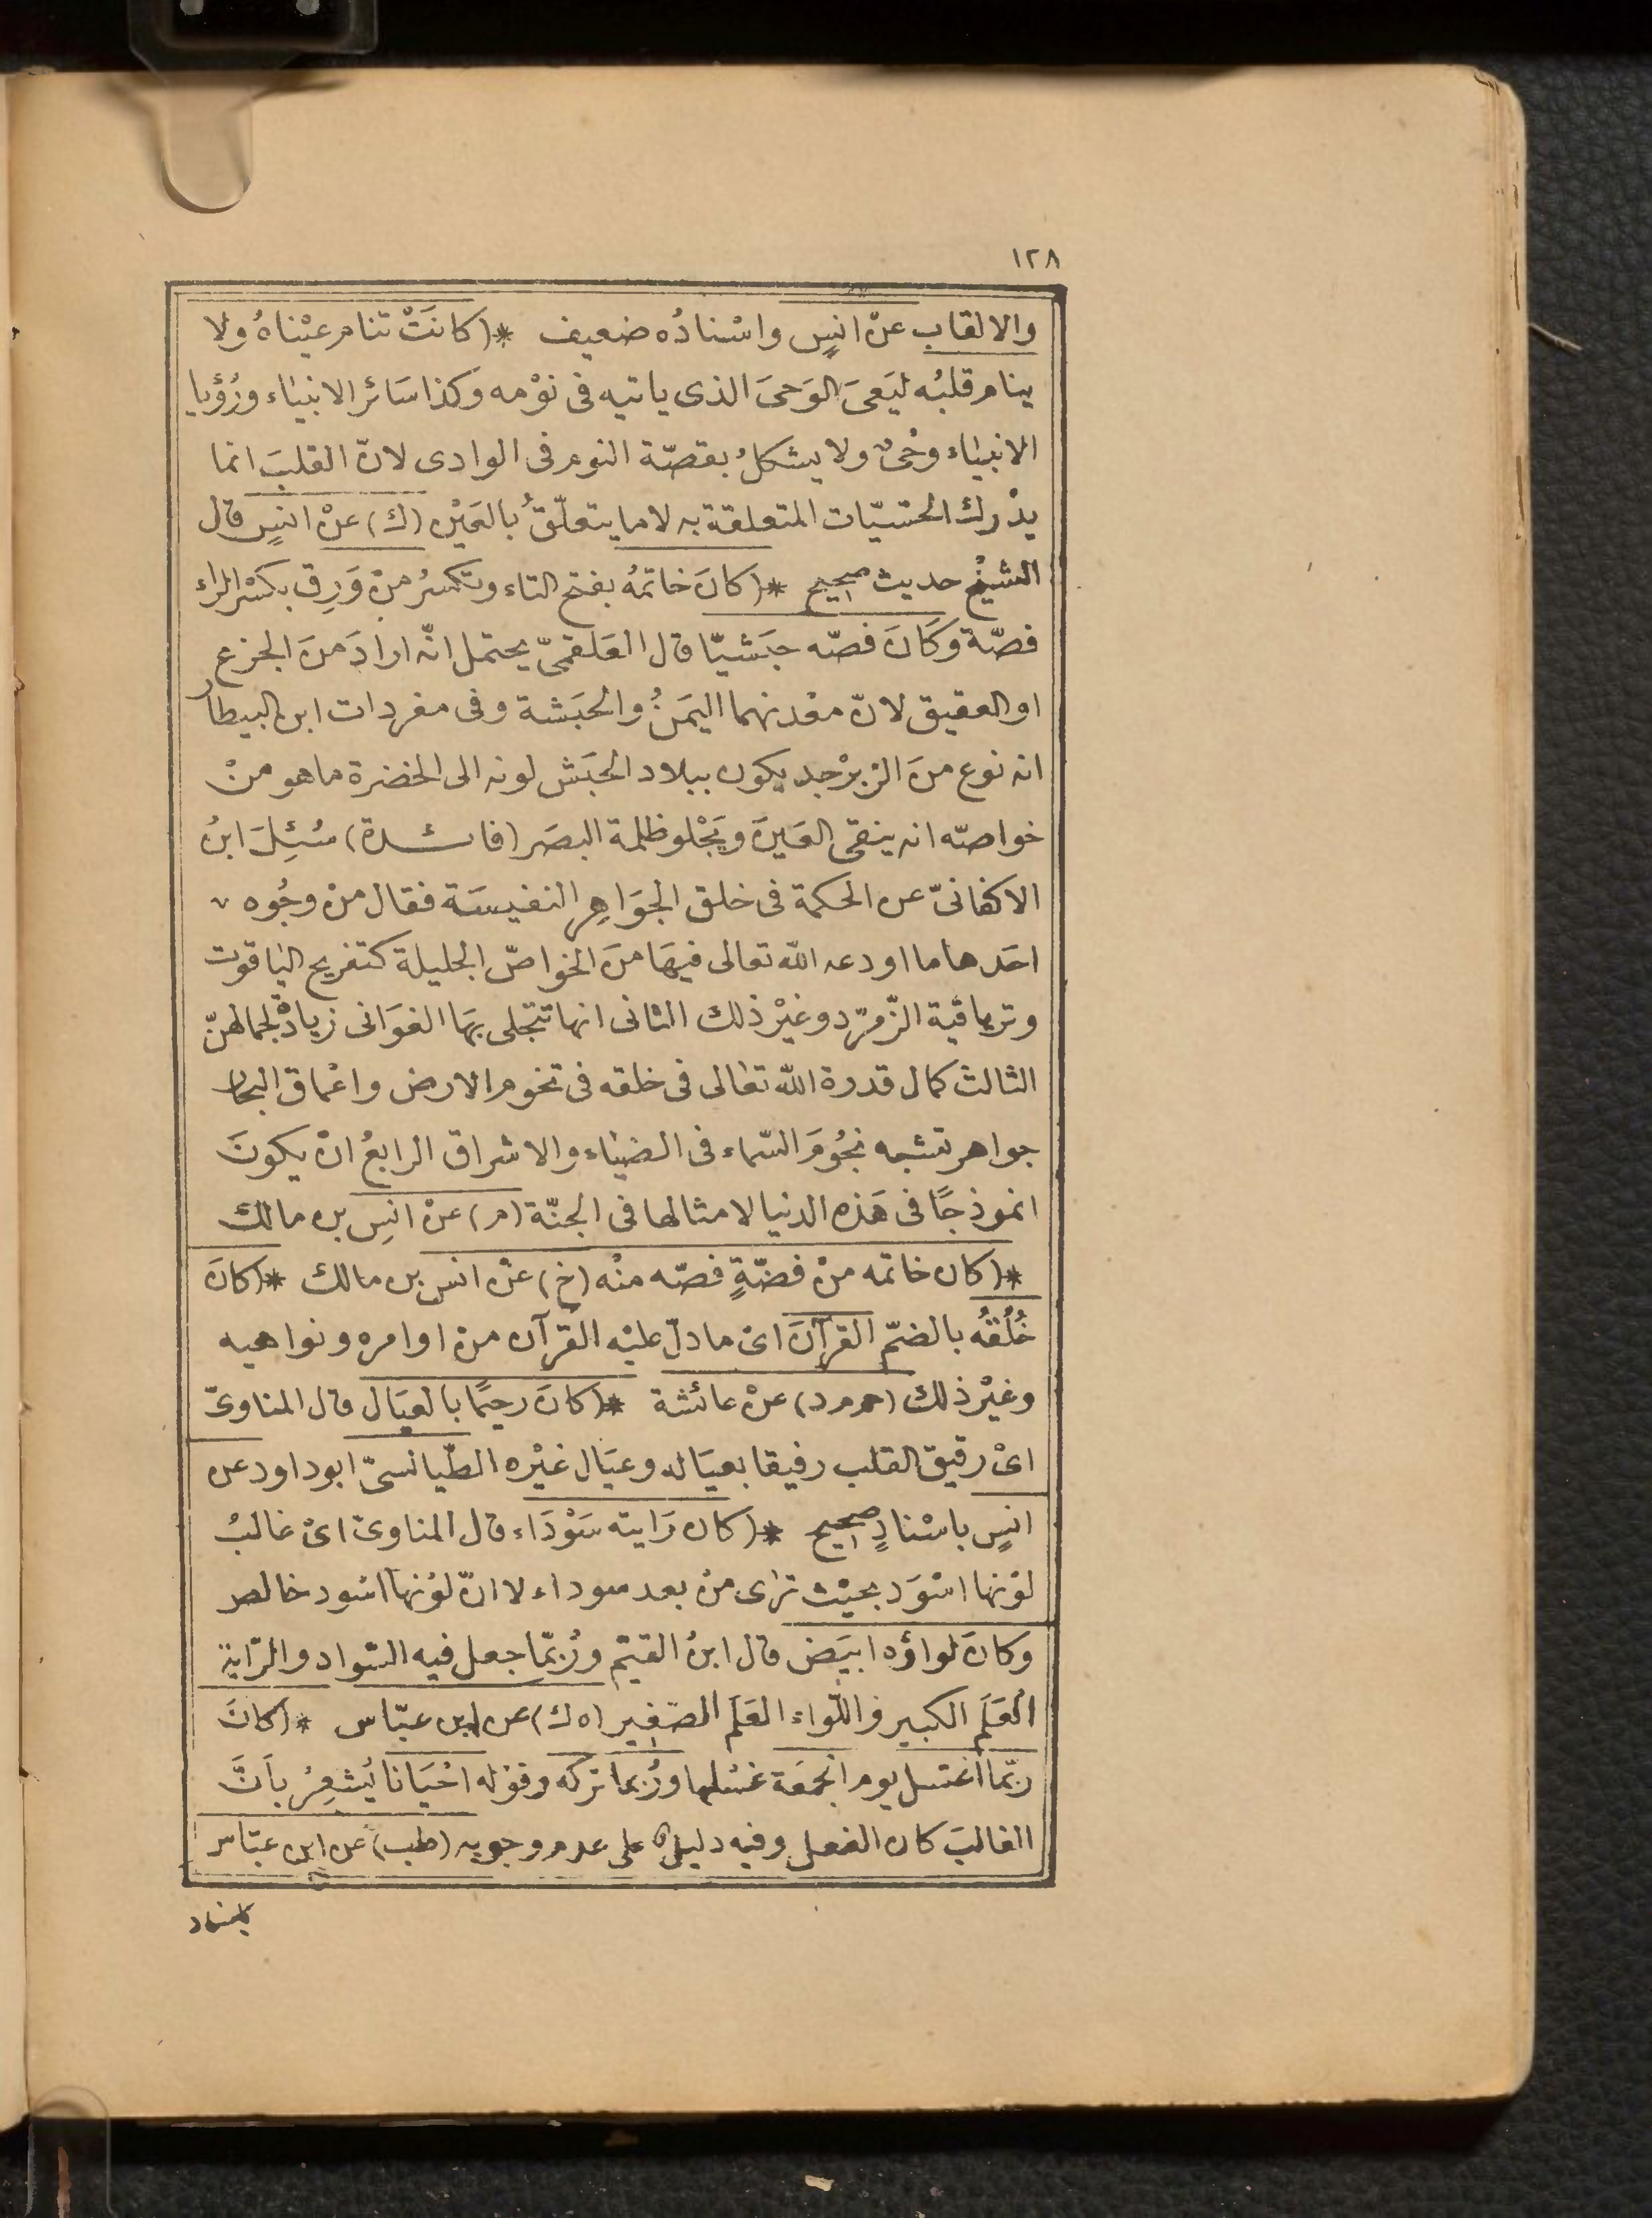 ١٢٨
والالقاب عنْ انسٍ واسْنادُه ضعيف *(كانَتْ تنام عيْناهُ ولا
ينام قلبُه ليَعىَ الوَحىَ الذى ياتيه فى نوْمه وَكذا سَائر الانبيَاء ورُؤيا
الانبيَاء وحْىٌ ولا يشكلُ بقصّة النوم فى الوادى لانّ القلبَ انما
يدْرك الحسّيّات المتعلقة به لا ما يتعلّقُ بالعَيْن (ك) عنْ انسٍ قال
الشيْخ حديث صحيح *(كانَ خاتمهُ بفتح التاء وتكسرُ منْ وَرِق بكسْر الراء
فضّة وَكانَ فصّه حبَشيّا قال العَلقمىّ يحتمل انّه ارادَ منَ الجزع
او العقيق لانّ معْدنهما اليمَنُ والحبَشة وفى مفردات ابن البيطار
انه نوع منَ الزبرْجد يكون ببلاد الحبَش لونه الى الخضرة ما هو منْ
خواصّه انه ينقى العَينَ ويَجْلو ظلمة البصَر (فائدة) سُئِلَ ابنُ
الاكفانىّ عن الحكمة فى خلق الجوَاهِرِ النفيسَة فقال منْ وجُوه
احَدها ما اودعه الله تعالى فيهَا منَ الخواصّ الجليلة كتفريح اليَاقوت
وترياقية الزّمرّد وغيْر ذلك الثانى انها تتجلى بهَا الغوَانى زيادةً لجمالهنّ
الثالث كمال قدرة الله تعَالى فى خلقه فى تخوم الارض واعْماق البحار
جواهر تشبه نجُومَ السّماء فى الضيَاء والاشراق الرابعُ انْ يكونَ
انموذجًا فى هَذه الدنيا لامثالها فى الجنّة (م) عنْ انسِ بن مالك
*(كان خاتمه منْ فضّةٍ فصّه منْه (خ) عنْ انس بن مالك *(كانَ
خُلُقهُ بالضمّ القرآنَ اىْ ما دلّ عليْه القرآن منْ اوامره ونواهيه
وغيْر ذلك (حم م د) عنْ عائشة *(كانَ رحيمًا بالعيَال قال المناوىّ
اىْ رقيق القلب رفيقا بعيَاله وعيَال غيْره الطّيالسىّ ابوداود عن
انسٍ باسْنادٍ صحيح *(كان رَايته سَوْدَاء قال المناوىّ اىْ غالبُ
لوْنها اسْوَد بحيْث ترَى منْ بعد سوداء لا انّ لوْنها اسْود خالص
وكانَ لواؤه ابيَض قال ابنُ القيّم ورُبمّا جعل فيه السّواد والرّاية
العَلَم الكبير واللّواء العَلَم الصّغير (ه ك) عن ابن عبّاس *(كانَ
ربّما اغتسل يوم الجمعَة غسْلها ورُبما تركه وقوْله احْيَانا يُشعِرُ بأنَّ
الغالبَ كان الفعل وفيه دليلٌ على عدم وجوبه (طب) عن ابن عبّاس
باسْناد